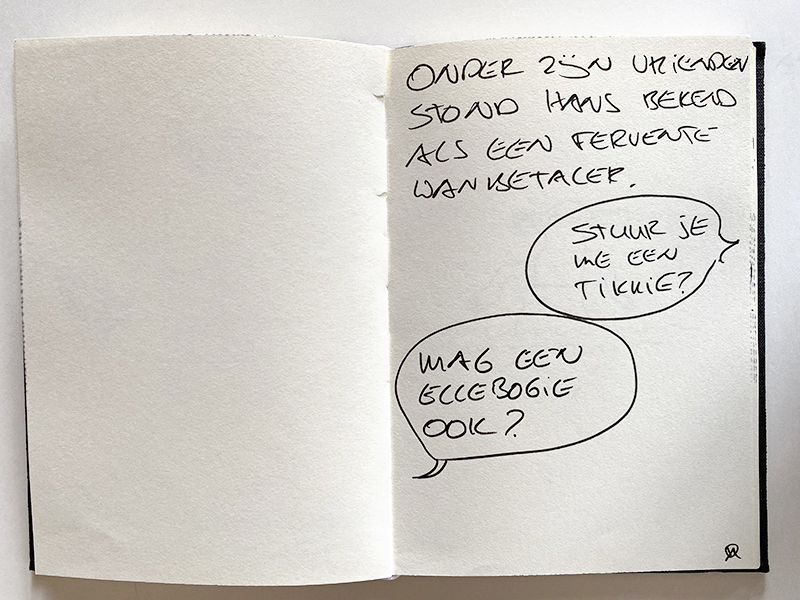 ONDER ZIJN VRIENDEN
STOND HANS BEKEND
ALS EEN FERVENTE
WANBETALER.
STUUR JE
ME EEN
TIKKIE?
MAG EEN
ELLEBOGIE
OOK?